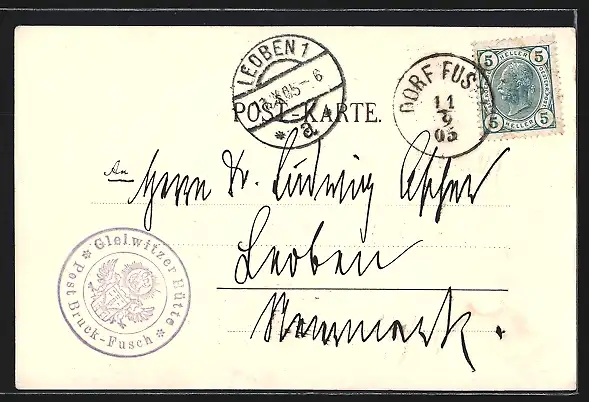 LEOBEN 1
DORF FUS
11
9
05
5 HELLER 5
5 HELLER 5
POST-KARTE.
a
An
Herrn Dr. Ludwig Ascher
Leoben
Steiermark.
* Gleiwitzer Hütte *
Post Bruck-Fusch